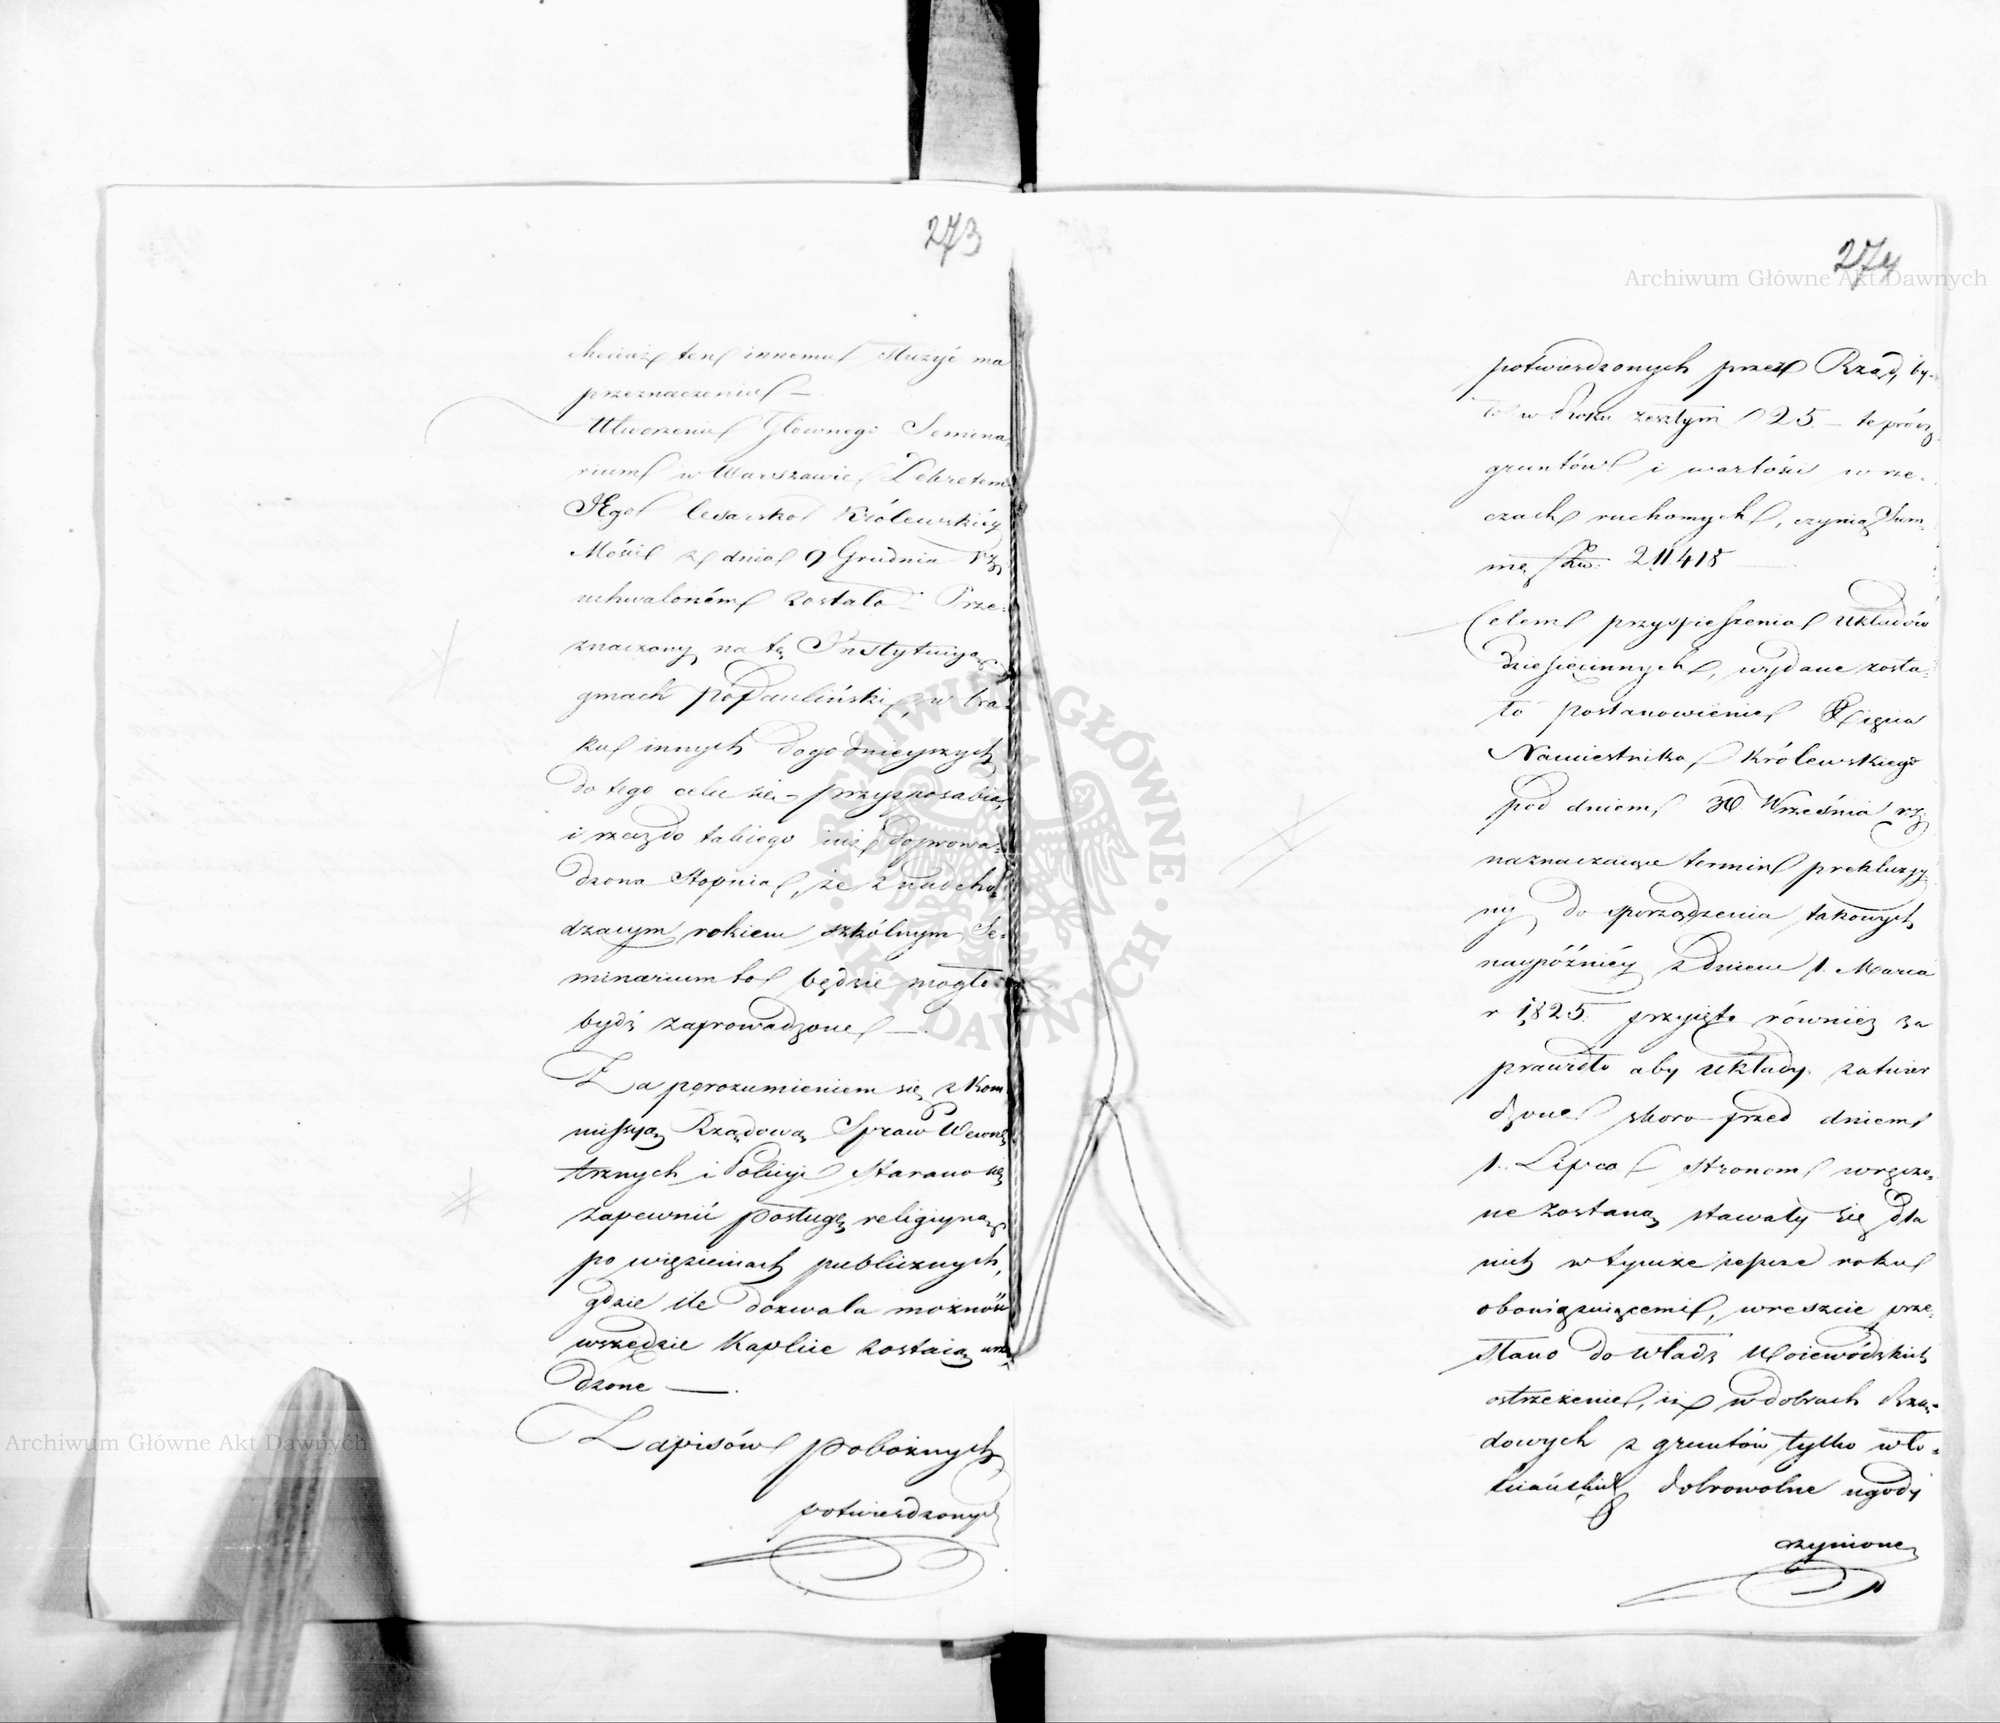 273
chociaż ten innemu służyć ma
przeznaczeniu —
Utworzenie Głównego Semina=
rium w Warszawie Dekretem
JEgo Cesarsko Królewskiéy
Mości z dnia 9 Grudnia rz.
uchwaloném zostało – Prze=
znaczony na tę Instytucyą
gmach poPauliński, w bra=
ku innych dogodnieyszych
do tego celu się przysposabia,
i rzecz do takiego iuż doprowa=
dzona stopnia, że z nadcho=
dzącym rokiem szkólnym Se=
minarium to będzie mogło
bydź zaprowadzone —.
Za porozumieniem się z Kom
missyą Rządową Spraw Wewnę
trznych i Policyi starano się
zapewnić posługę religiyną
po więzieniach publicznych,
gdzie ile dozwala możność
wszędzie Kaplice zostaią urzą
dzone —.
Zapisów pobożnych
potwierdzonych
274
potwierdzonych przez Rząd, by=
ło w Roku zeszłym 125 – te prócz
gruntów i wartości w rze=
czach ruchomych, czynią Sum=
mę Złp. 211,418 —
Celem przyspieszenia układów
dziesięcinnych, wydane zosta=
ło postanowienie Xięcia
Namiestnika Królewskiego
pod dniem 30 Września rz.
naznaczaiące termin prekluzyy=
ny do sporządzenia takowych
naypóźniéy z dniem 1. Marca
r 1825. przyięto również za
prawidło aby układy zatwier
dzone skoro przed dniem
1. Lipca stronom wręczo=
ne zostaną stawały się dla
nich w tymże ieszcze roku
obowiązuiącemi, wreszcie prze=
słano do władz Woiewódzkich
ostrzeżenie, iż w dobrach Rzą=
dowych z gruntów tylko wło=
ściańskich dobrowolne ugody
czynione
Archiwum Główne Akt Dawnych
Archiwum Główne Akt Dawnych
ARCHIWUM GŁÓWNE AKT DAWNYCH